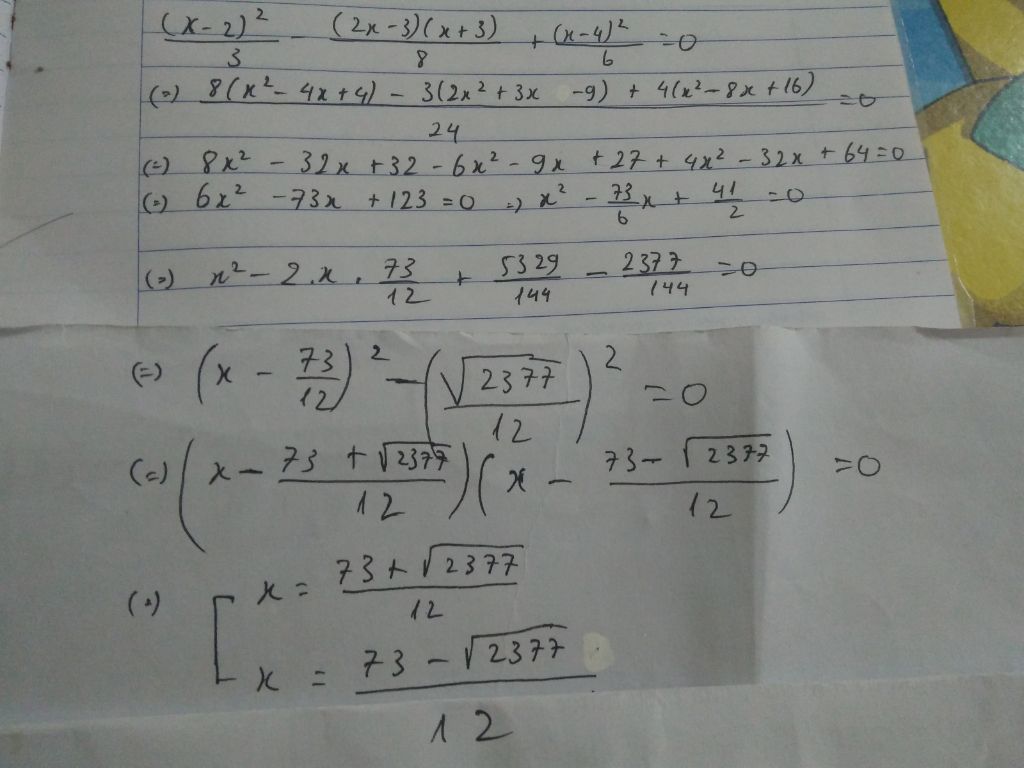 (x-2)²/3 - (2x-3)(x+3)/8 + (x-4)²/6 = 0
(=) 8(x² - 4x + 4) - 3(2x² + 3x - 9) + 4(x² - 8x + 16)/24 = 0
(=) 8x² - 32x + 32 - 6x² - 9x + 27 + 4x² - 32x + 64 = 0
(=) 6x² - 73x + 123 = 0 => x² - 73/6 x + 41/2 = 0
(=) x² - 2.x. 73/12 + 5329/144 - 2377/144 = 0
(=) (x - 73/12)² - (√2377/12)² = 0
(=) (x - 73 + √2377/12)(x - 73 - √2377/12) = 0
(=) [ x = 73 + √2377/12
x = 73 - √2377/12